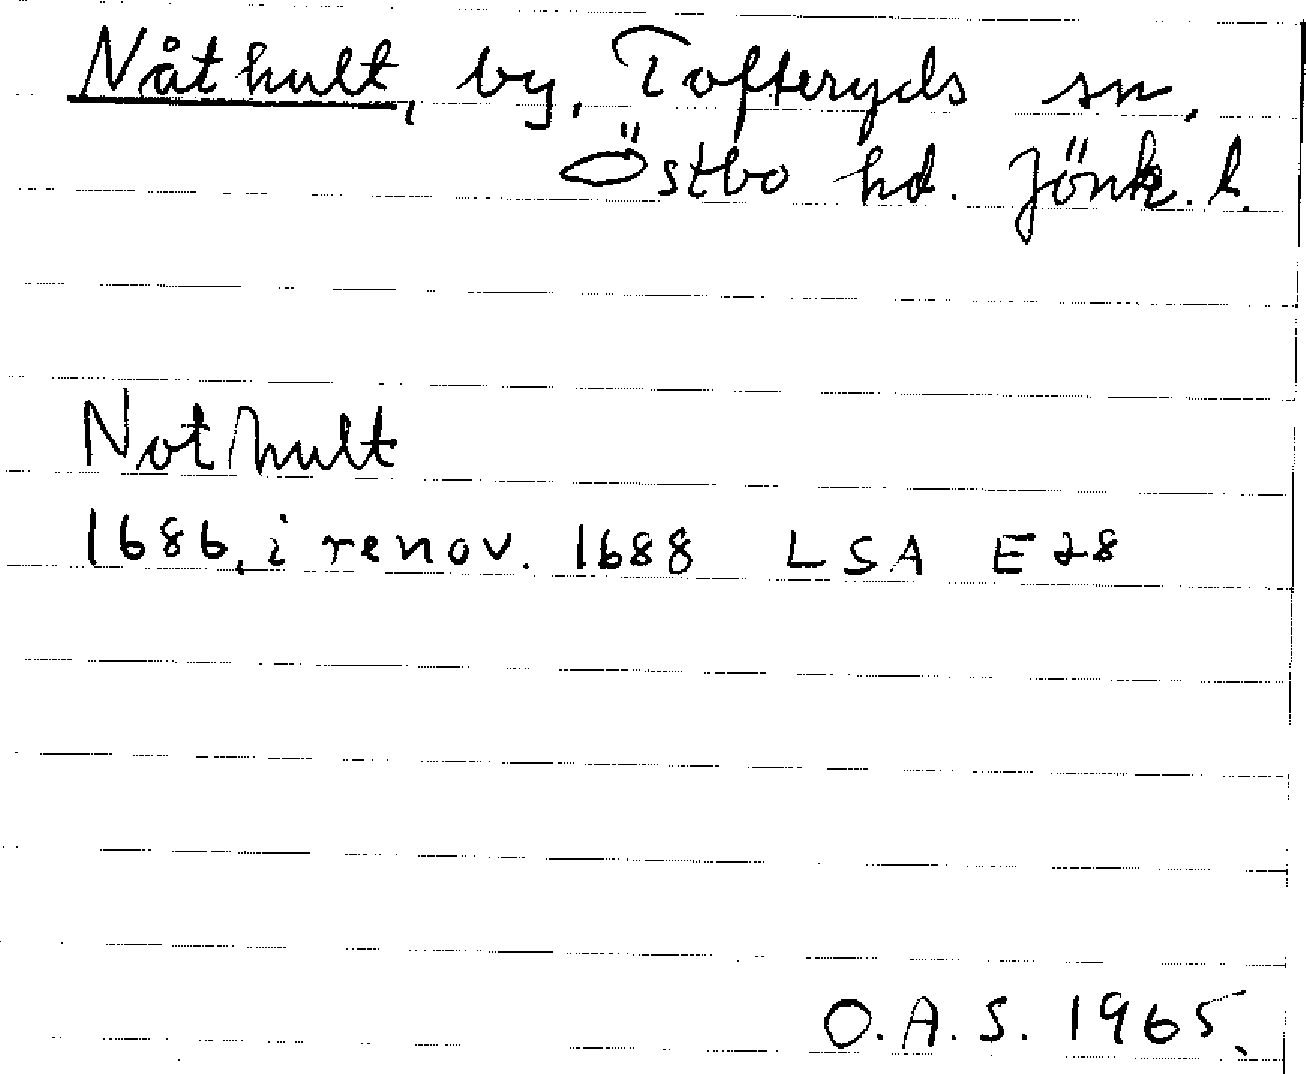 Nåthult, by, Tofteryds sn,
Östbo hd. Jönk. l.
Nothult
1686, i renov. 1688 LSA E28
O.A.S. 1965.